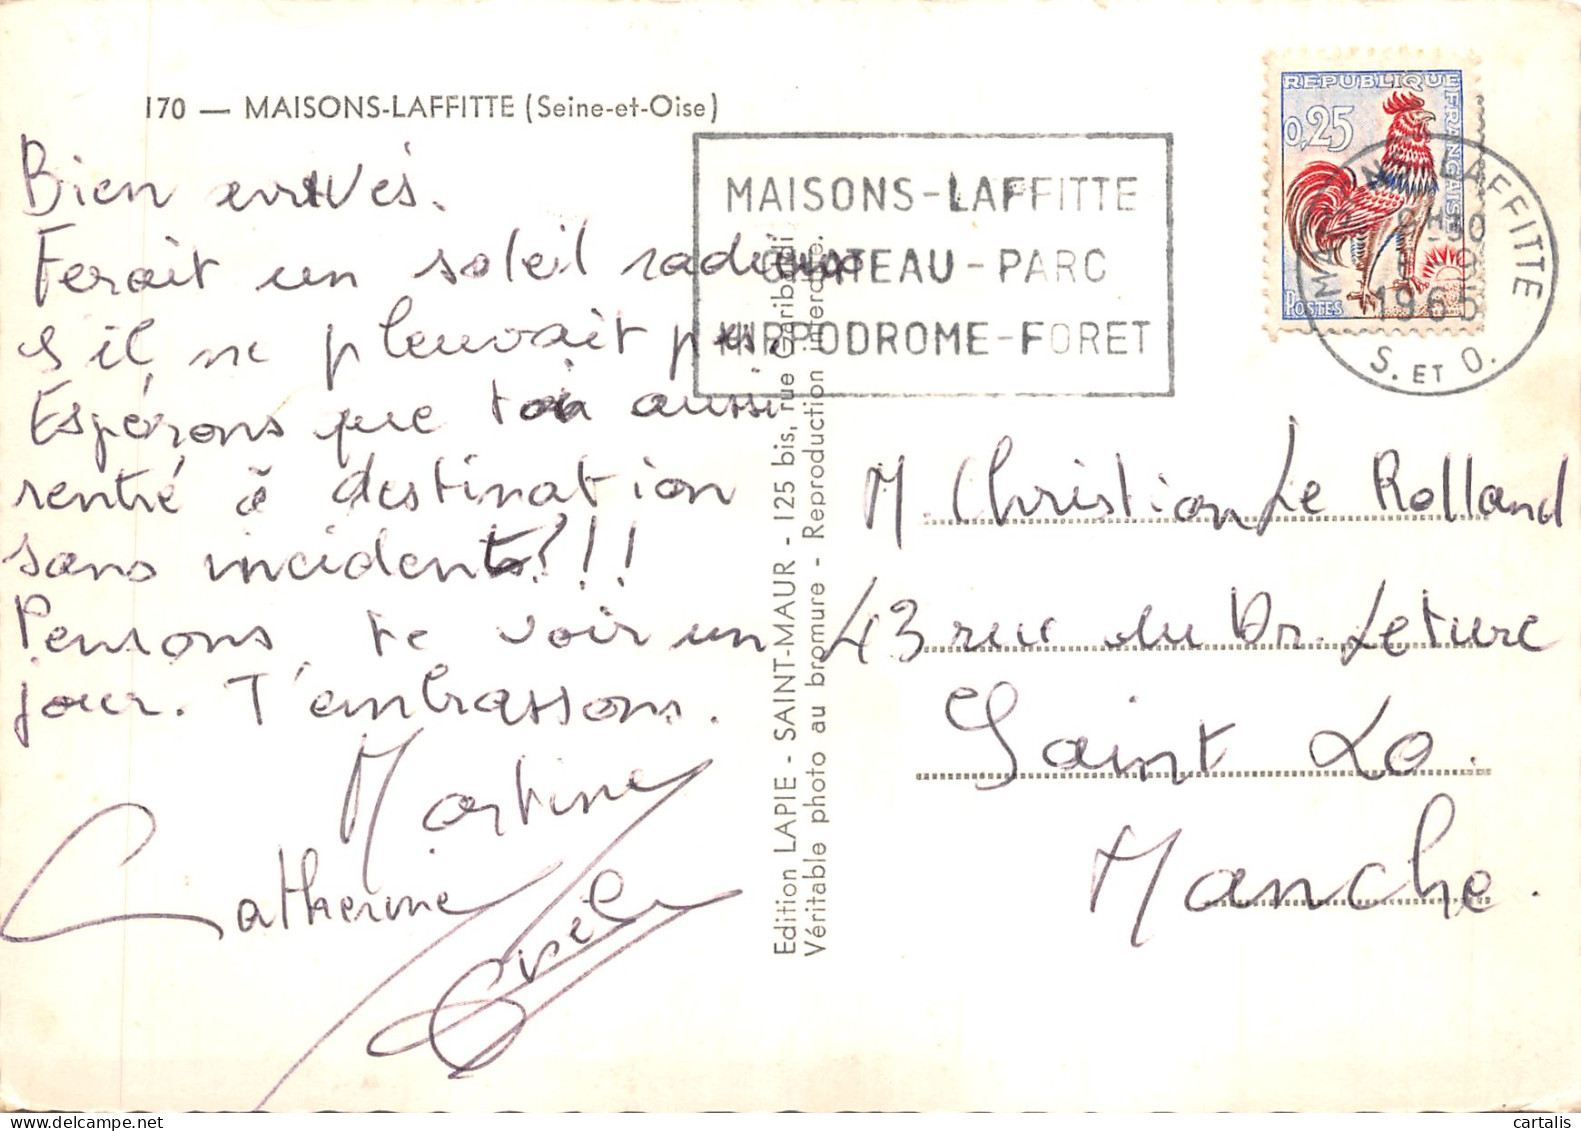 170 — MAISONS-LAFFITTE (Seine-et-Oise)
Bien arrivés.
Ferait un soleil radieux
s'il ne pleuvait pas.
Espérons que toi aussi
rentré à destination
sans incidents?!!
Pensons te voir un
jour. T'embrassons.
Martine
Catherine
Gisèle
MAISONS-LAFFITTE
CHATEAU-PARC
HIPPODROME-FORET
Edition LAPIE - SAINT-MAUR - 125 bis, rue Garibaldi
Véritable photo au bromure - Reproduction interdite.
REPUBLIQUE FRANÇAISE
0,25
POSTES
MAISONS-LAFFITTE
1965
S. ET O.
M. Christian Le Rolland
43 rue du Dr. Leturc
Saint Lo.
Manche.
cartalis